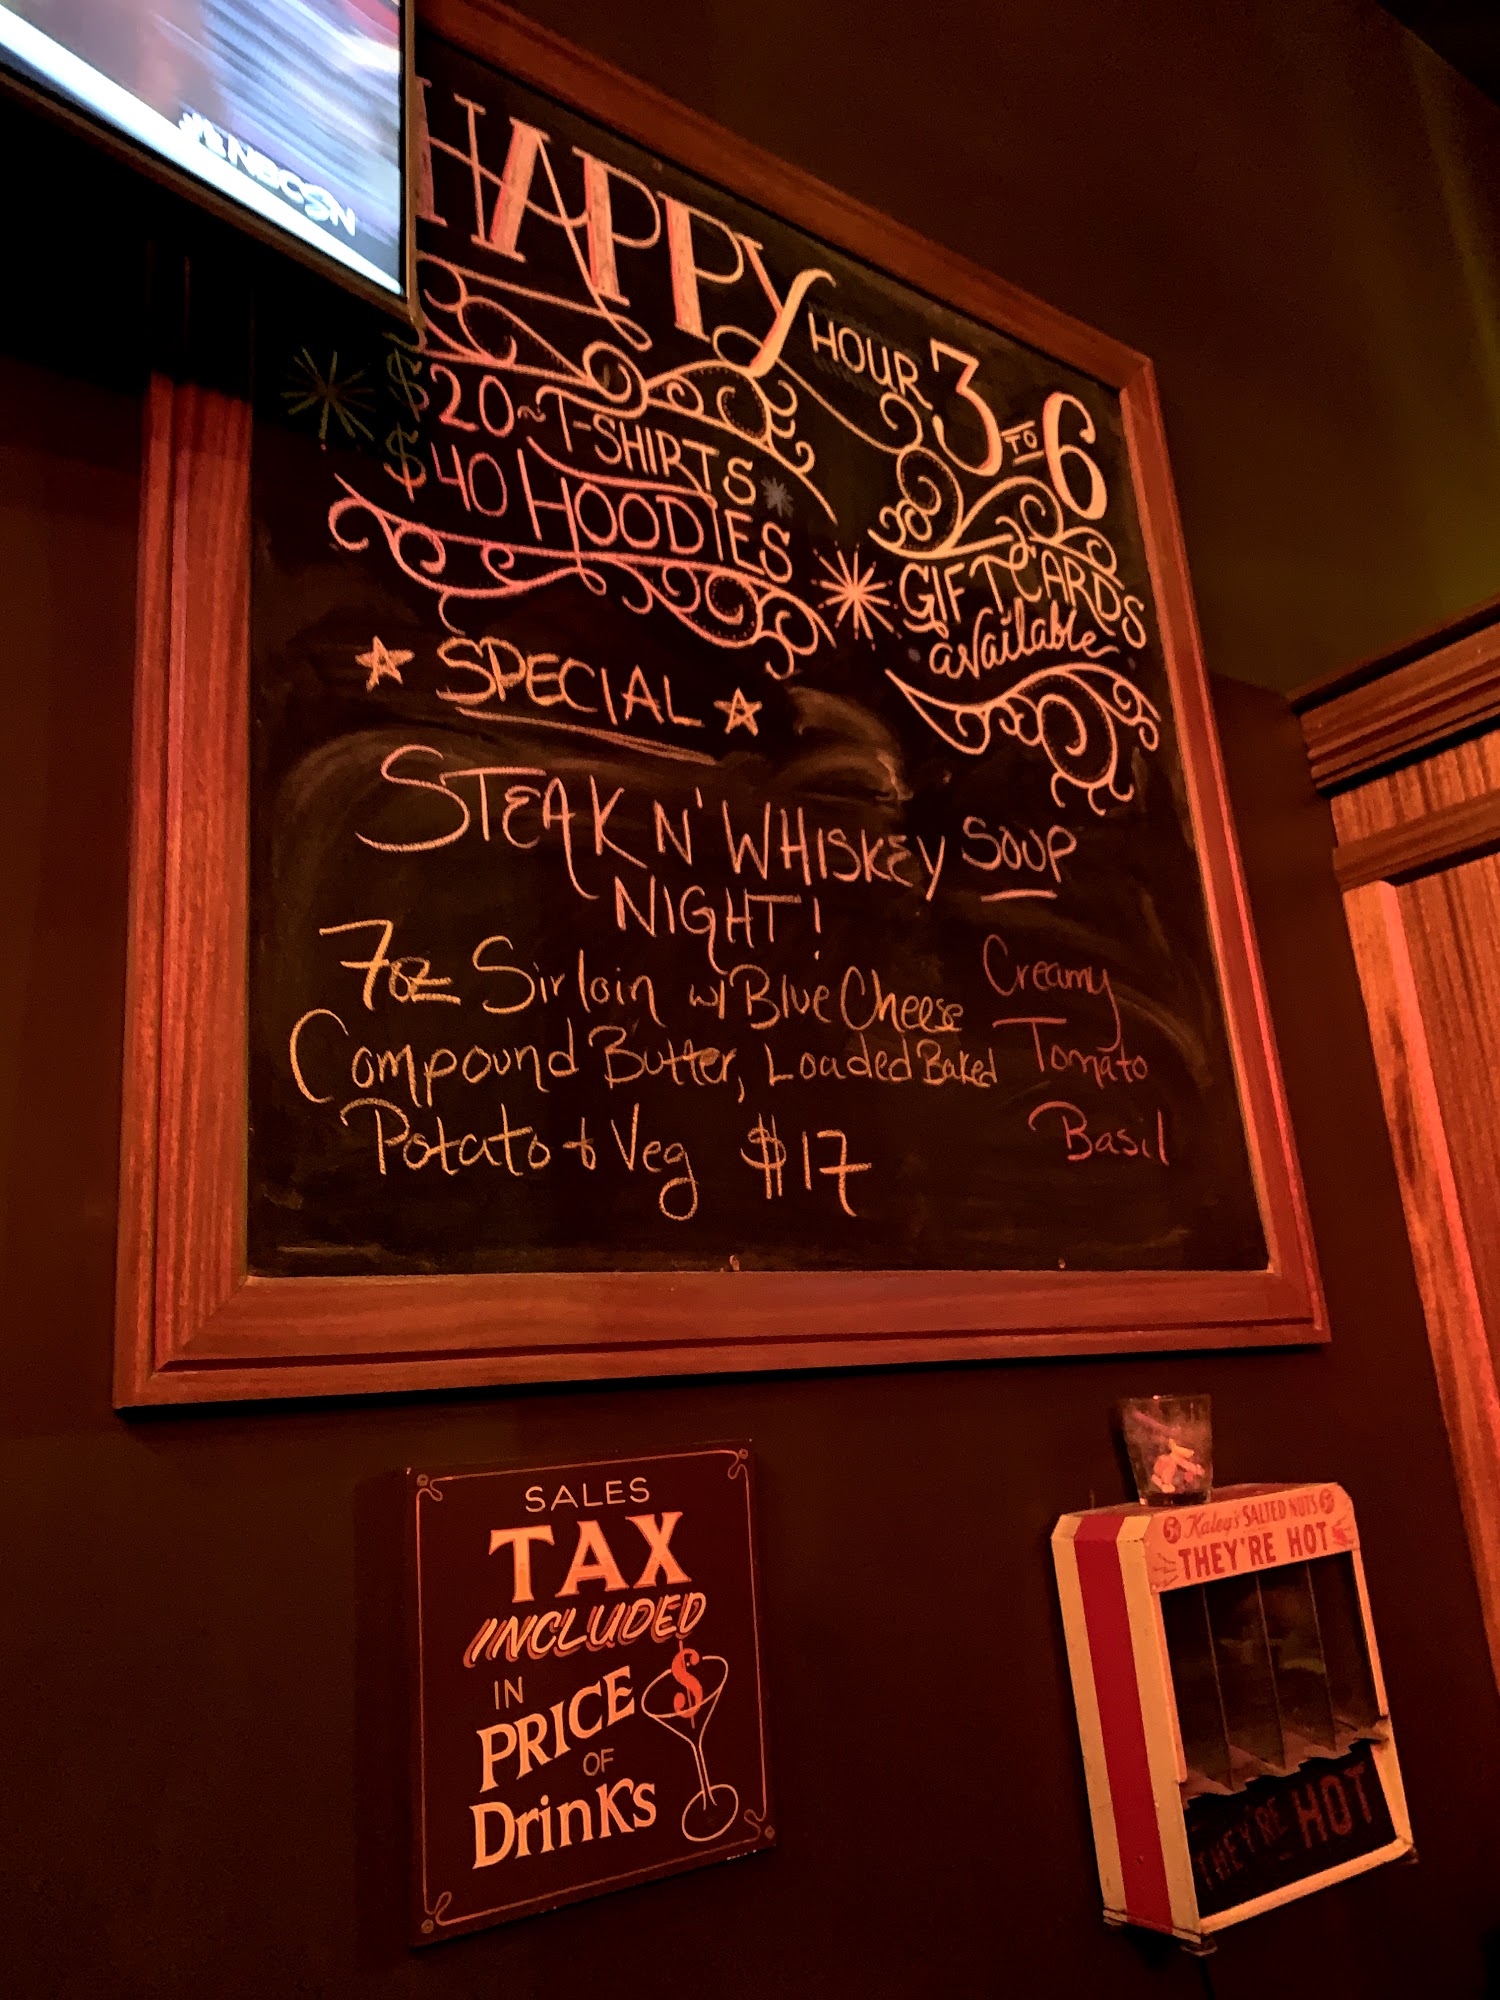 NBCSN
HAPPY HOUR 3 TO 6
$20~T-SHIRTS
$40 HOODIES
GIFT CARDS
available
SPECIAL
STEAK N' WHISKEY
NIGHT!
7oz Sirloin w/ Blue Cheese
Compound Butter, Loaded Baked
Potato + Veg $17
SOUP
Creamy
Tomato
Basil
SALES
TAX
INCLUDED
IN
PRICE
OF
Drinks
$
SALTED NUTS
THEY'RE HOT
THEY'RE HOT